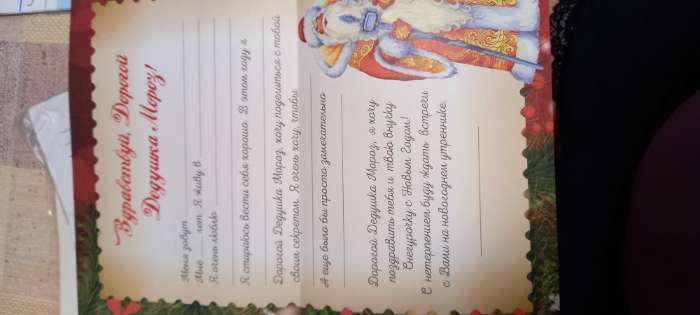 Здравствуй, Дорогой
Дедушка Мороз!
Меня зовут
Мне ___ лет. Я живу в
Я очень люблю
Я стараюсь вести себя хорошо. В этом году я
Дорогой Дедушка Мороз, хочу поделиться с тобой
своим секретом. Я очень хочу, чтобы
А еще было бы просто замечательно
Дорогой Дедушка Мороз, я хочу
поздравить тебя и твою внучку
Снегурочку с Новым Годом!
С нетерпением буду ждать встречи
с Вами на новогоднем утреннике.